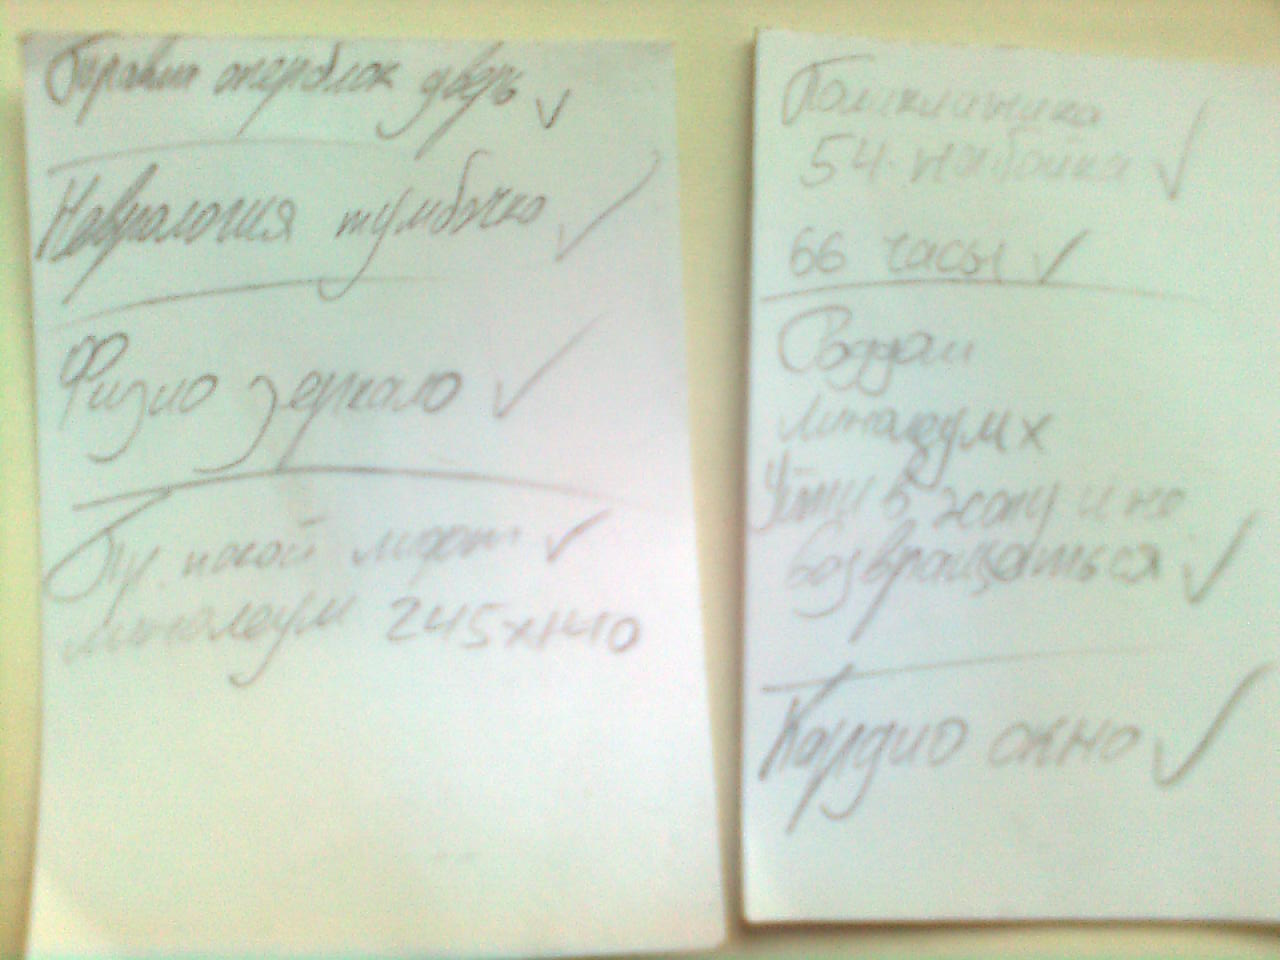 Травм оперблок дверь ✓
Неврология тумбочка ✓
Физио зеркало ✓
Пр. покой ✓
линалеум 245х140
Поликлиника
54. набойка ✓
66 часы ✓
Роддом
линалеум х
Уйти в жопу и не
возвращаться ✓
Кардио окно ✓